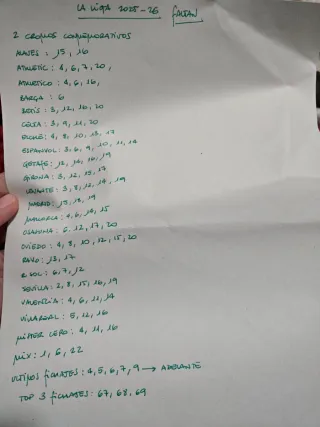 LA LIGA 2025-26 FALTAN
2 CROMOS CONMEMORATIVOS
ALAVES: 15, 16
ATHLETIC: 4, 6, 7, 20,
ATLETICO: 4, 6, 16,
BARÇA: 6
BETIS: 3, 12, 16, 20
CELTA: 3, 9, 11, 20
ELCHE: 4, 8, 10, 13, 17
ESPANYOL: 3, 6, 9, 10, 11, 14
GETAFE: 12, 14, 16, 19
GIRONA: 3, 12, 15, 17
LEVANTE: 3, 8, 12, 14, 19
MADRID: 15, 18, 19
MALLORCA: 4, 6, 14, 15
OSASUNA: 5, 12, 17, 20
OVIEDO: 4, 8, 10, 12, 15, 20
RAYO: 13, 17
R. SOC: 6, 7, 12
SEVILLA: 2, 8, 15, 16, 19
VALENCIA: 4, 6, 11, 14
VILLAREAL: 5, 12, 16
MISTER CERO: 4, 11, 16
MIX: 1, 6, 22
ULTIMOS FICHAJES: 4, 5, 6, 7, 9 → ADELANTE
TOP 3 FICHAJES: 67, 68, 69